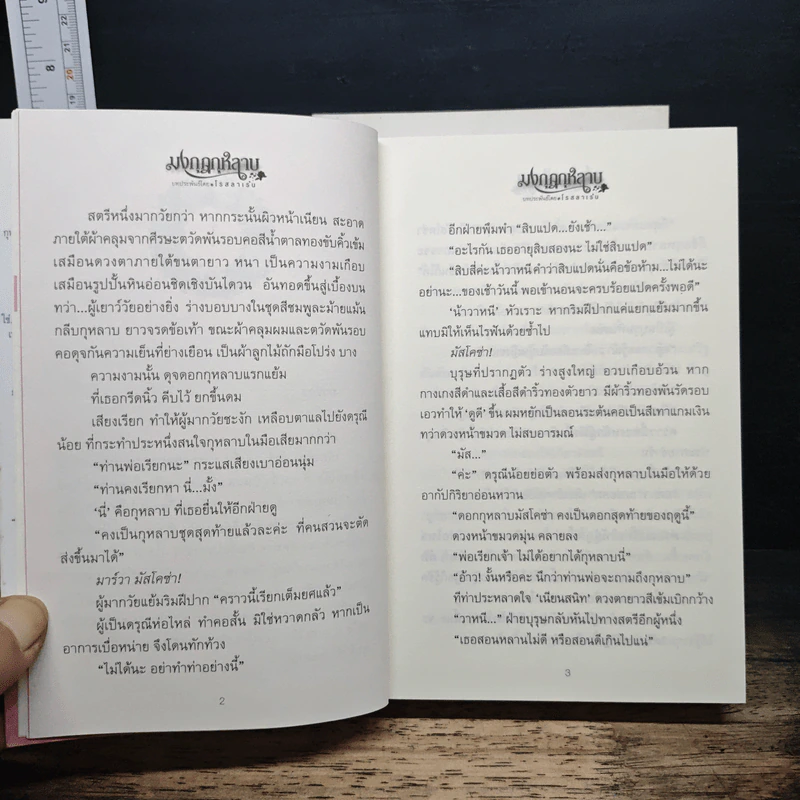 มงกุฎกุหลาบ
บทประพันธ์โดย • โรสลาเร็น
สตรีหนึ่งมากวัยกว่า หากกระนั้นผิวหน้าเนียน สะอาด
ภายใต้ผ้าคลุมจากศีรษะตวัดพันรอบคอสีน้ำตาลทองขับคิ้วเข้ม
เสมือนดวงตาภายใต้ขนตายาว หนา เป็นความงามเกือบ
เสมือนรูปปั้นหินอ่อนชดิชเชิงบันไดวน อันทอดขึ้นสู่เบื้องบน
ทว่า...ผู้เยาว์วัยอย่างยิ่ง ร่างบอบบางในชุดสีชมพูละม้ายแม้น
กลีบกุหลาบ ยาวจรดข้อเท้า ขณะผ้าคลุมผมและตวัดพันรอบ
คอดุจกันความเย็นที่ย่างเยือน เป็นผ้าลูกไม้ถักมือโปร่ง บาง
ความงามนั้น ดุจดอกกุหลาบแรกแย้ม
ที่เธอกรีดนิ้ว คีบไว้ ยกขึ้นดม
เสียงเรียก ทำให้ผู้มากวัยชะงัก เหลือบตาแลไปยังดรุณี
น้อย ที่กระทำประหนึ่งสนใจกุหลาบในมือเสียมากกว่า
“ท่านพ่อเรียกนะ” กระแสเสียงเบาอ่อนนุ่ม
“ท่านคงเรียกหา นี่...มั้ง”
‘นี่’ คือกุหลาบ ที่เธอยื่นให้อีกฝ่ายดู
“คงเป็นกุหลาบชุดสุดท้ายแล้วละค่ะ ที่คนสวนจะตัด
ส่งขึ้นมาได้”
มาร์วา มัสโคช่า!
ผู้มากวัยแย้มริมฝีปาก “คราวนี้เรียกเต็มยศแล้ว”
ผู้เป็นดรุณีห่อไหล่ ทำคอสั้น มิใช่หวาดกลัว หากเป็น
อาการเบื่อหน่าย จึงโดนทักท้วง
“ไม่ได้นะ อย่าทำท่าอย่างนี้”
2
มงกุฎกุหลาบ
บทประพันธ์โดย • โรสลาเร็น
อีกฝ่ายพึมพำ “สิบแปด...ยังเช้า...”
“อะไรกัน เธออายุสิบสองนะ ไม่ใช่สิบแปด”
“สิบสี่ค่ะ น้าวาหนี คำว่าสิบแปดนั่นคือข้อห้าม...ไม่ได้นะ
อย่านะ...ของเช้าวันนี้ พอเข้านอนจะครบร้อยแปดครั้งพอดี”
‘น้าวาหนี’ หัวเราะ หากริมฝีปากแค่แยกแย้มมากขึ้น
แทบมิให้เห็นไรฟันด้วยซ้ำไป
มัสโคช่า!
บุรุษที่ปรากฏตัว ร่างสูงใหญ่ อวบเกือบอ้วน หาก
กางเกงสีดำและเสื้อสีดำริ้วทองตัวยาว มีผ้าริ้วทองพันวัดรอบ
เอวทำให้ ‘ดูดี’ ขึ้น ผมหยักเป็นลอนระต้นคอเป็นสีเทาแกมเงิน
ทว่าดวงหน้าขมวด ไม่สบอารมณ์
“มัส...”
“ค่ะ” ดรุณีน้อยย่อตัว พร้อมส่งกุหลาบในมือให้ด้วย
อากัปกิริยาอ่อนหวาน
“ดอกกุหลาบมัสโคช่า คงเป็นดอกสุดท้ายของฤดูนี้”
ดวงหน้าขมวดมุ่น คลายลง
“พ่อเรียกเจ้า ไม่ได้อยากได้กุหลาบนี่”
“อ้าว! งั้นหรือคะ นึกว่าท่านพ่อจะถามถึงกุหลาบ”
ทีท่าประหลาดใจ ‘เนียนสนิท’ ดวงตายาวสีเข้มเบิกกว้าง
“วาหนี...” ฝ่ายบุรุษกลับหันไปทางสตรีอีกผู้หนึ่ง
“เธอสอนหลานไม่ดี หรือสอนดีเกินไปแน่”
3
9
8
22
21
20
19